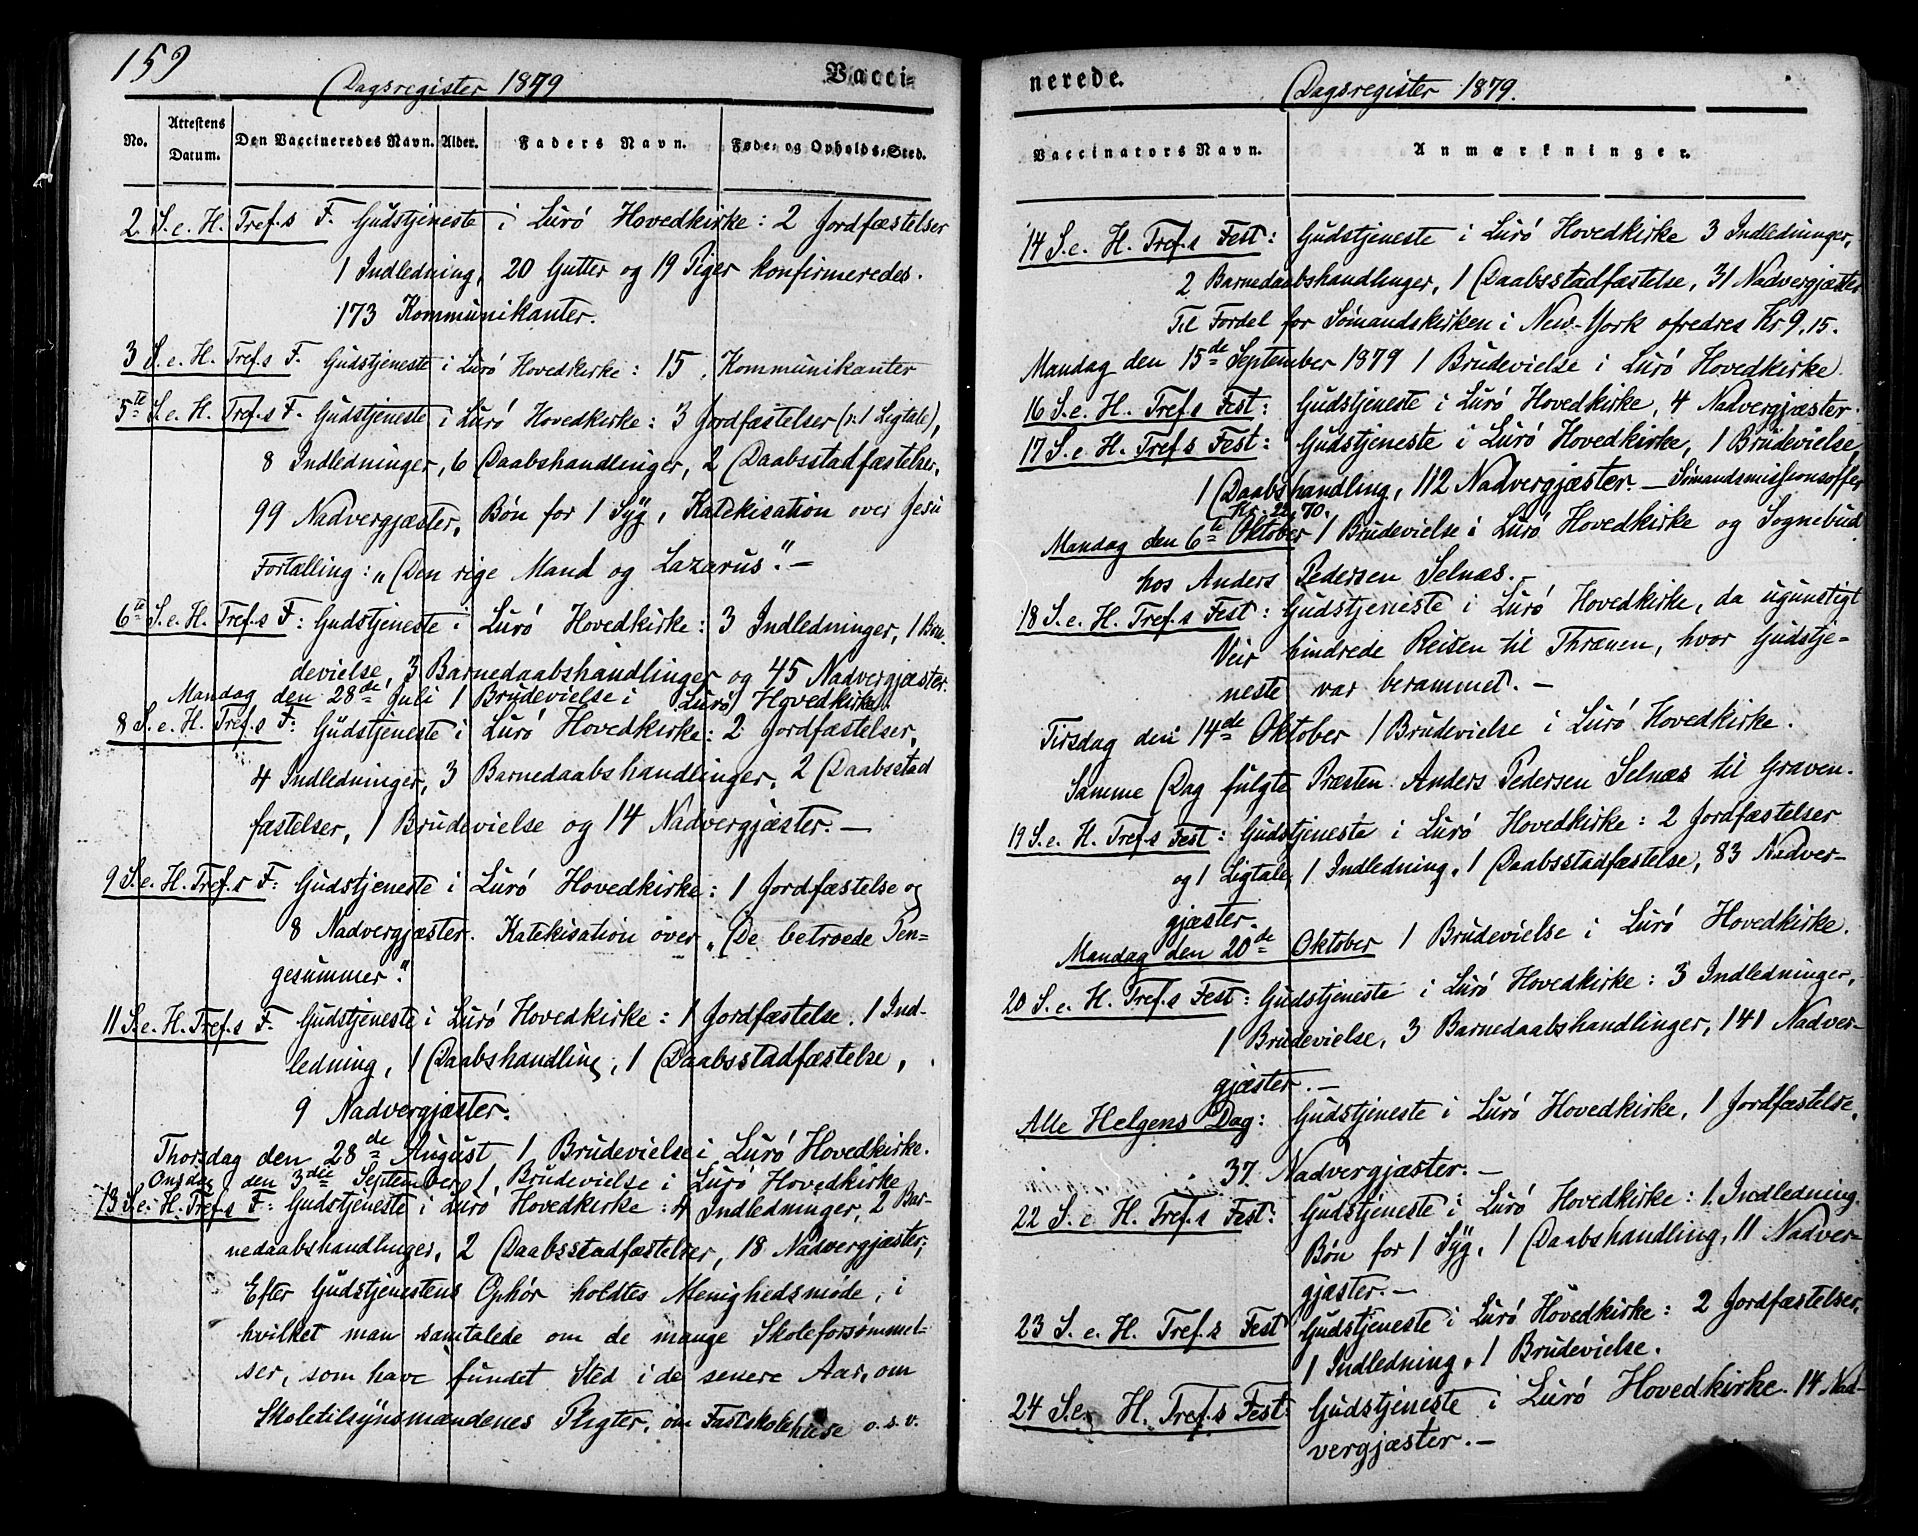 159
Dagsregister 1879
Vacci-
No.
Attestens Datum.
Den Vaccineredes Navn.
Alder.
Faders Navn.
Føde- og Opholds-Sted.
2 S. e. H. Tref.s F. Gudstjeneste i Lurö Hovedkirke: 2 Jordfæstelser
1 Indledning, 20 Gutter og 19 Piger konfirmeredes.
173 Kommunikanter.
3 S. e. H. Tref.s F. Gudstjeneste i Lurö Hovedkirke: 15 Kommunikanter
5te S. e. H. Tref.s F. Gudstjeneste i Lurö Hovedkirke: 3 Jordfæstelser (v. 1 Ligtale),
8 Indledninger, 6 Daabshandlinger, 2 Daabsstadfæstelser,
99 Nadvergjæster, Bøn for 1 Syg, Katekisation over Jesu
Fortælling: "Den rige Mand og Lazarus". —
6te S. e. H. Tref.s F: Gudstjeneste i Lurö Hovedkirke: 3 Indledninger, 1 Bru-
devielse, 3 Barnedaabshandlinger og 45 Nadvergjæster.
Mandag den 28de Juli 1 Brudevielse i Lurö Hovedkirke.
8 S. e. H. Tref.s F: Gudstjeneste i Lurö Hovedkirke: 2 Jordfæstelser,
4 Indledninger, 3 Barnedaabshandlinger, 2 Daabsstad
fæstelser, 1 Brudevielse og 14 Nadvergjæster. —
9 S. e. H. Tref.s F: Gudstjeneste i Lurö Hovedkirke: 1 Jordfæstelse og
8 Nadvergjæster. Katekisation over "De betroede Pen-
gesummer".
11 S. e. H. Tref.s F. Gudstjeneste i Lurö Hovedkirke: 1 Jordfæstelse. 1 Ind-
ledning, 1 Daabshandling, 1 Daabsstadfæstelse,
9 Nadvergjæster.
Thorsdag den 28de August 1 Brudevielse i Lurö Hovedkirke.
Onsdag den 3die September 1 Brudevielse i Lurö Hovedkirke
13 S. e. H. Tref.s F: Gudstjeneste i Lurö Hovedkirke: 4 Indledninger, 2 Bar-
nedaabshandlinger, 2 Daabsstadfæstelser, 18 Nadvergjæster;
Efter Gudstjenestens Ophør holdtes Menighedsmøde, i
hvilket man samtalede om de mange Skoleforsømmel-
ser, som have fundet Sted i de senere Aar, om
Skoletilsynsmændenes Pligter, om Fastskolehuse o. s. v.
nerede.
Dagsregister 1879.
Vaccinators Navn.
Anmærkninger.
14 S. e. H. Tref.s Fest: Gudstjeneste i Lurö Hovedkirke 3 Indledninger,
2 Barnedaabshandlinger, 1 Daabsstadfæstelse, 31 Nadvergjæster
Til Fordel for Sømandskirken i New-York ofredes Kr 9,15.
Mandag den 15de September 1879 1 Brudevielse i Lurö Hovedkirke.
16 S. e. H. Tref.s Fest: Gudstjeneste i Lurö Hovedkirke, 4 Nadvergjæster.
17 S. e. H. Tref.s Fest: Gudstjeneste i Lurö Hovedkirke, 1 Brudevielse,
1 Daabshandling, 112 Nadvergjæster. — Sømandsmissionsoffer
Kr. 22,70.
Mandag den 6te Oktober 1 Brudevielse i Lurö Hovedkirke og Sognebud
hos Anders Pedersen Selnæs. —
18 S. e. H. Tref.s Fest: Gudstjeneste i Lurö Hovedkirke, da ugunstigt
Veir hindrede Reisen til Thrænen, hvor Gudstje-
neste var berammet. —
Tirsdag den 14de Oktober 1 Brudevielse i Lurö Hovedkirke.
Samme Dag fulgte Præsten Anders Pedersen Selnæs til Graven.
19 S. e. H. Tref.s Fest: Gudstjeneste i Lurö Hovedkirke: 2 Jordfæstelser
og 1 Ligtale, 1 Indledning, 1 Daabsstadfæstelse, 83 Nadver-
gjæster.
Mandag den 20de Oktober 1 Brudevielse i Lurö Hovedkirke.
20 S. e. H. Tref.s Fest: Gudstjeneste i Lurö Hovedkirke: 3 Indledninger,
1 Brudevielse, 3 Barnedaabshandlinger, 141 Nadver-
gjæster. —
Alle Helgens Dag: Gudstjeneste i Lurö Hovedkirke, 1 Jordfæstelse,
37 Nadvergjæster. —
22 S. e. H. Tref.s Fest: Gudstjeneste i Lurö Hovedkirke: 1 Indledning,
Bøn for 1 Syg, 1 Daabshandling, 11 Nadver-
gjæster. —
23 S. e. H. Tref.s Fest Gudstjeneste i Lurö Hovedkirke: 2 Jordfæstelser,
1 Indledning, 1 Brudevielse.
24 S. e. H. Tref.s Fest: Gudstjeneste i Lurö Hovedkirke. 14 Nad-
vergjæster. —